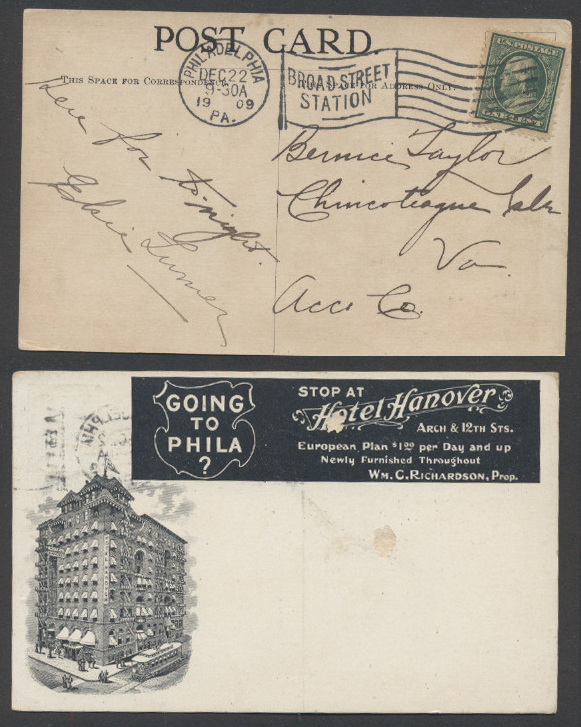 POST CARD.
THIS SPACE FOR CORRESPONDENCE
FOR ADDRESS ONLY.
PHILADELPHIA
DEC 22
9-30A
19 09
PA.
BROAD STREET
STATION
U.S. POSTAGE
Here for
to-night.
Elsie
Bernice Taylor
Chincoteague
Va
Acc. Co.
GOING
TO
PHILA
?
STOP AT
Hotel Hanover
ARCH & 12TH STS.
European Plan $1.00 per Day and up
Newly Furnished Throughout
WM. C. RICHARDSON, Prop.